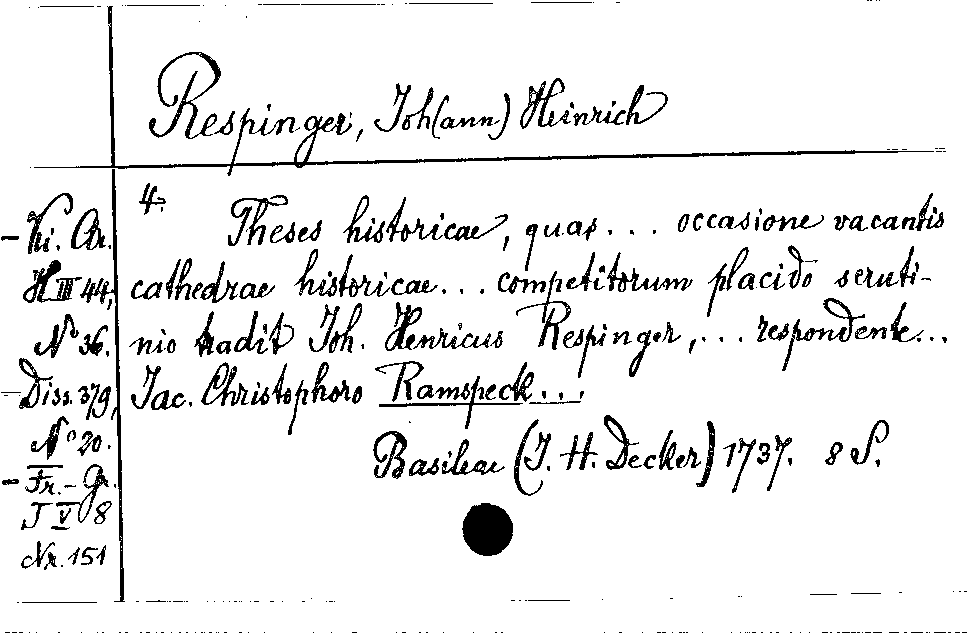 Respinger, Joh(ann) Heinrich
4.
Theses historicae, quas ... occasione vacantis
cathedrae historicae ... competitorum placido scruti-
nio tradit Joh. Henricus Respinger, ... respondente ...
Jac. Christophoro Ramspeck ...
Basileae (J. H. Decker) 1737. 8 S.
- Ki. Ar.
H III 44,
No 36.
- Diss. 379,
No 20.
- Fr.-Gr.
J V 8
Nr. 151